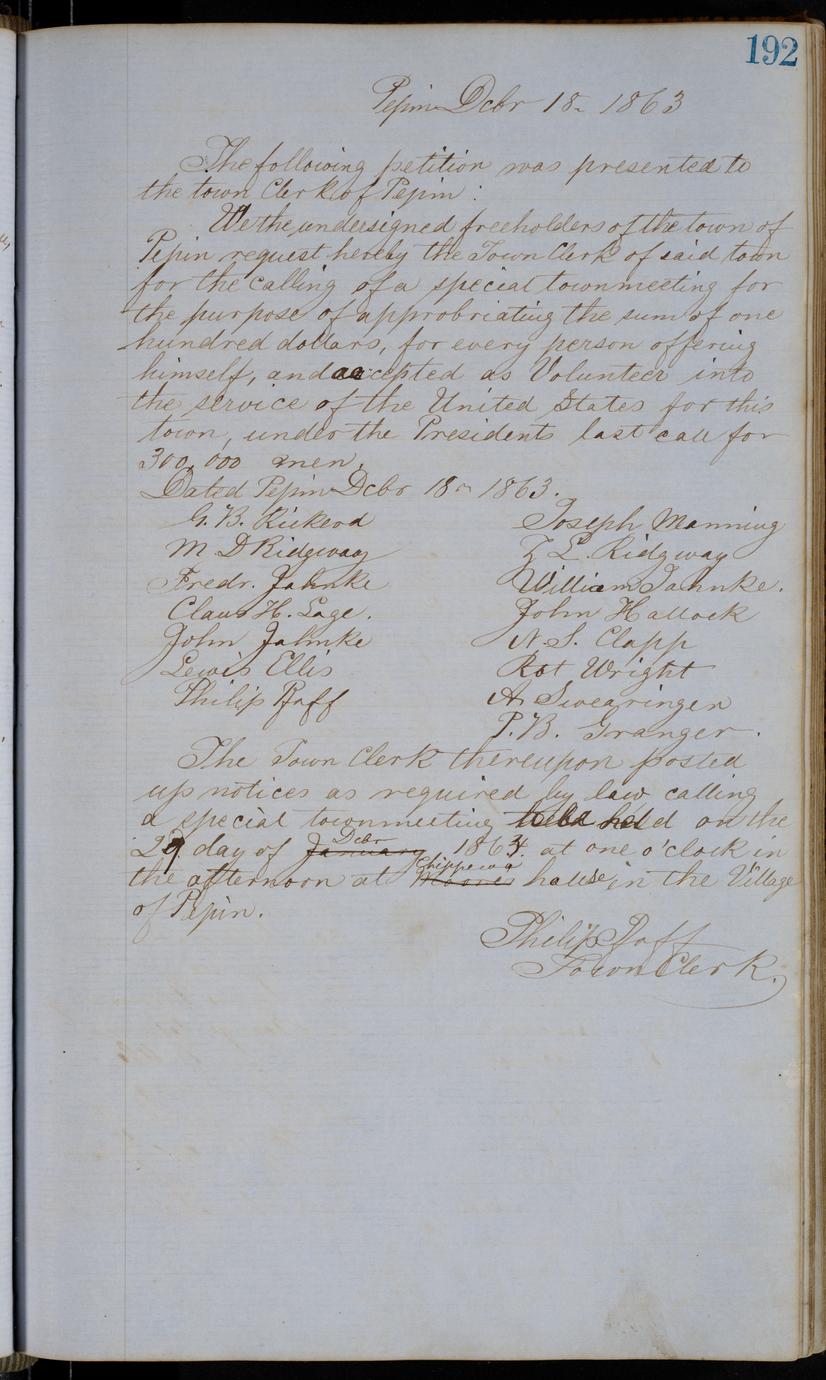 192
Pepin Dcbr 18- 1863
The following petition was presented to
the town Clerk of Pepin :
We the undersigned freeholders of the town of
Pepin request hereby the Town Clerk of said town
for the calling of a special townmeeting for
the purpose of approbriating the sum of one
hundred dollars, for every person offering
himself, and accepted as Volunteer into
the service of the United States for this
town, under the Presidents last call for
300,000 men.
Dated Pepin Dcbr 18- 1863.
G. B. Rickerd Joseph Manning
M D Ridgway Z L. Ridgway
Fredr. Jahnke William Jahnke.
Claus H. Lage. John Hallock
John Jahnke N. S. Clapp
Lewis Ellis Rot Wright
Philip Raff A. Swearingen
P. B. Granger.
The Town Clerk thereupon posted
up notices as required by law calling
a special townmeeting to be held on the
Dcbr
29 day of January 1863. at one o'clock in
Chippewa
the afternoon at Moores house in the Village
of Pepin.
Philip Raff
Town Clerk.